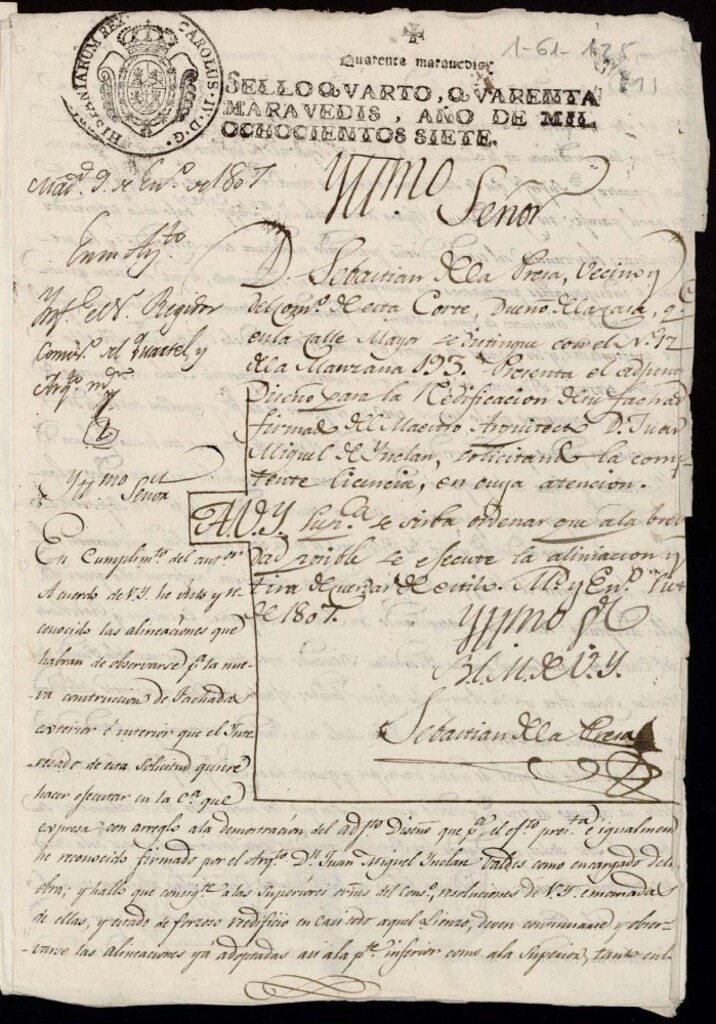 HISPANIARUM REX CAROLUS IV D. G.
1-61-125
Quarenta maravedis.
SELLO QVARTO, QVARENTA
MARAVEDIS, AÑO DE MIL
OCHOCIENTOS SIETE.
Mad.d 9. de En.o de 1807
Yll.mo
Señor
D. Sebastian de la Presa, Vecino y
del Com.o de esta Corte, Dueño de la casa, q.e
en la Calle Mayor se distingue con el N.o 12
de la Manzana 193. Presenta el adjunto
Diseño para la Redificacion de su fachada
firmado del Maestro Arquitecto D. Juan
Miguel de Ynclan, solicitando la compe-
tente licencia, en cuya atencion.
A V.Y. sup.ca se sirba ordenar que a la bre-
dad posible se efecute la aliniacion y
tira de cuerdas de estilo. M.d y En.o
de 1807.
Yllmo S.or
B.L.M. de V.Y.
Sebastian de la Presa
En Ay.to
Ynf.e el S.r Regidor
Comis.o del Quartel, y
Arq.to m.or
Yll.mo Señor
En Cumplim.to del anter.or
Acuerdo de V.Y. he visto y re-
conocido las alineaciones que
habran de observarse p.a la nue-
va construccion de Fachada
exterior é interior que el Inte-
resado de esta solicitud quiere
hacer efecutar en la C.a que
expresa, con arreglo a la demostracion del adj.to Diseño que p.a el ef.to pres.ta é igualmente
he reconocido firmado por el Arq.to D.n Juan Miguel Ynclan Valdes como encargado de la
obra; y hallo que consig.te a las Superiores orns del Cons.o, resoluciones de V.Y. emanadas
de ellas, y estado de forzoso reedificio en casi todo aquel Lienzo, deven continuarse y obser-
varse las alineaciones ya adoptadas asi a la p.te inferior como a la Superior, tanto en la